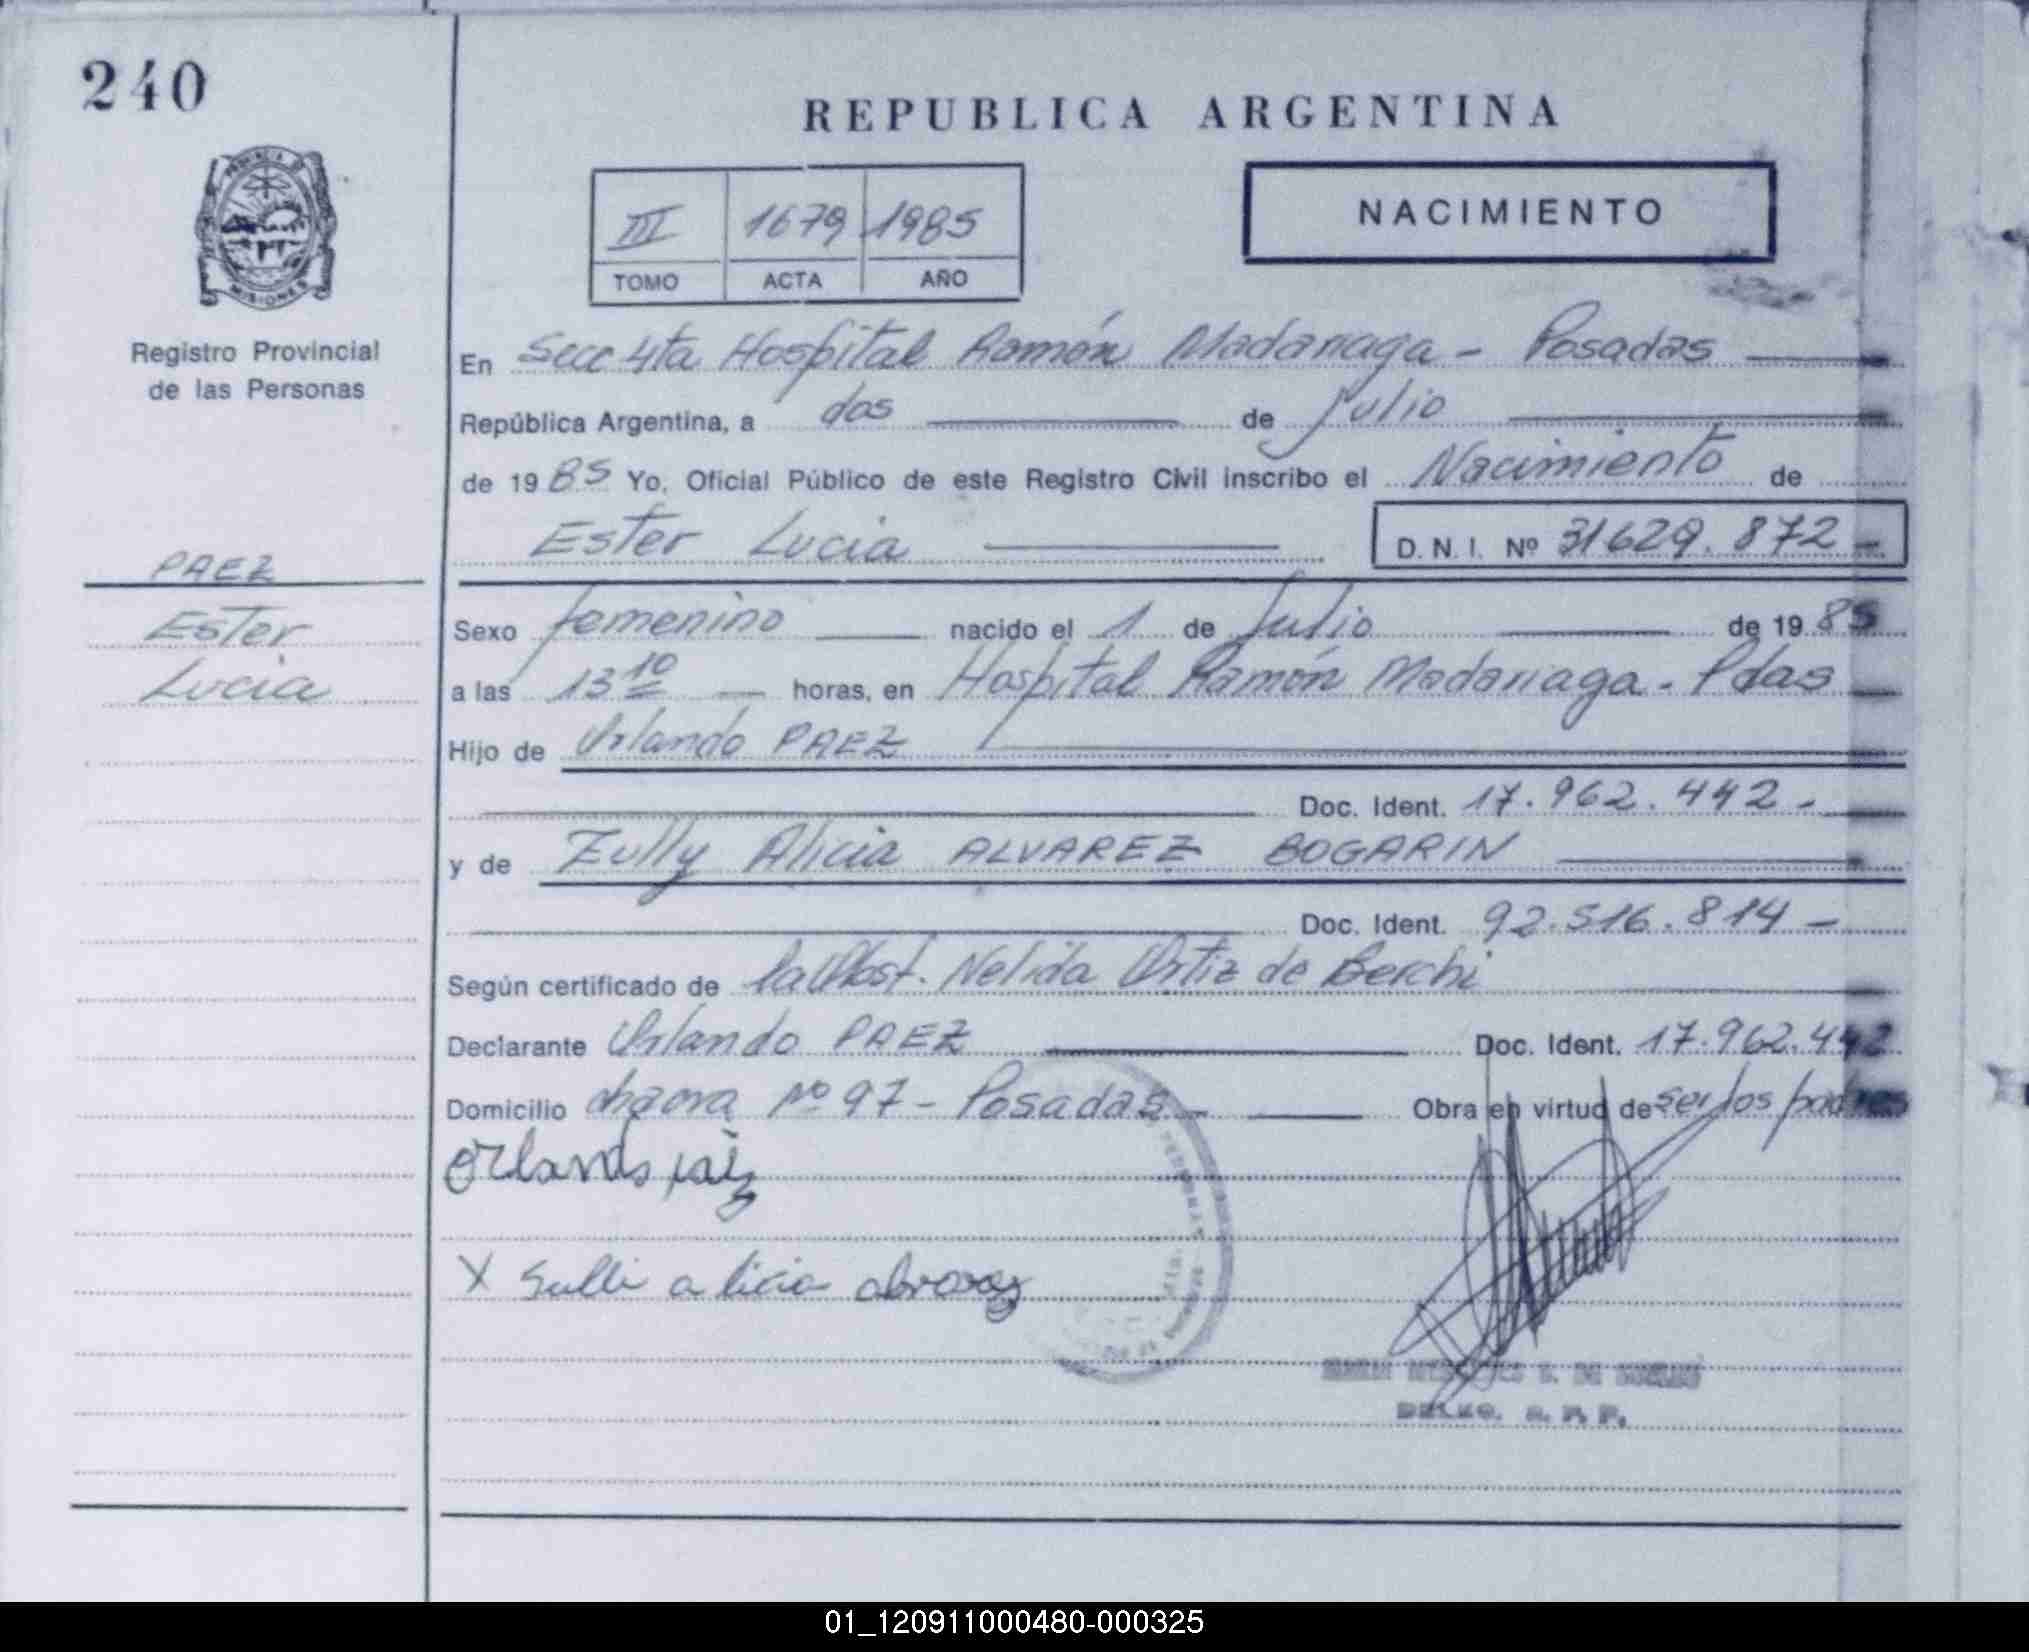 240
REPUBLICA ARGENTINA
III 1679 1985
TOMO ACTA AÑO
NACIMIENTO
PROVINCIA DE
MISIONES
Registro Provincial
de las Personas
En Secc 4ta Hospital Ramón Madariaga - Posadas
República Argentina, a dos de Julio
de 1985 Yo, Oficial Público de este Registro Civil inscribo el Nacimiento de
Ester Lucia D.N.I. Nº 31629.872-
PAEZ
Ester
Lucia
Sexo femenino nacido el 1 de Julio de 1985
a las 13 10 horas, en Hospital Ramón Madariaga - Pdas
Hijo de Orlando PAEZ
Doc. Ident. 17.962.442-
y de Zully Alicia ALVAREZ BOGARIN
Doc. Ident. 92.516.814-
Según certificado de la Obst. Nelida Ortiz de Berchi
Declarante Orlando PAEZ Doc. Ident. 17.962.442
Domicilio chacra Nº 97 - Posadas - Obra en virtud de ser los padres
Orlando paéz
X Sulli alicia
R. P. P.
01_120911000480-000325